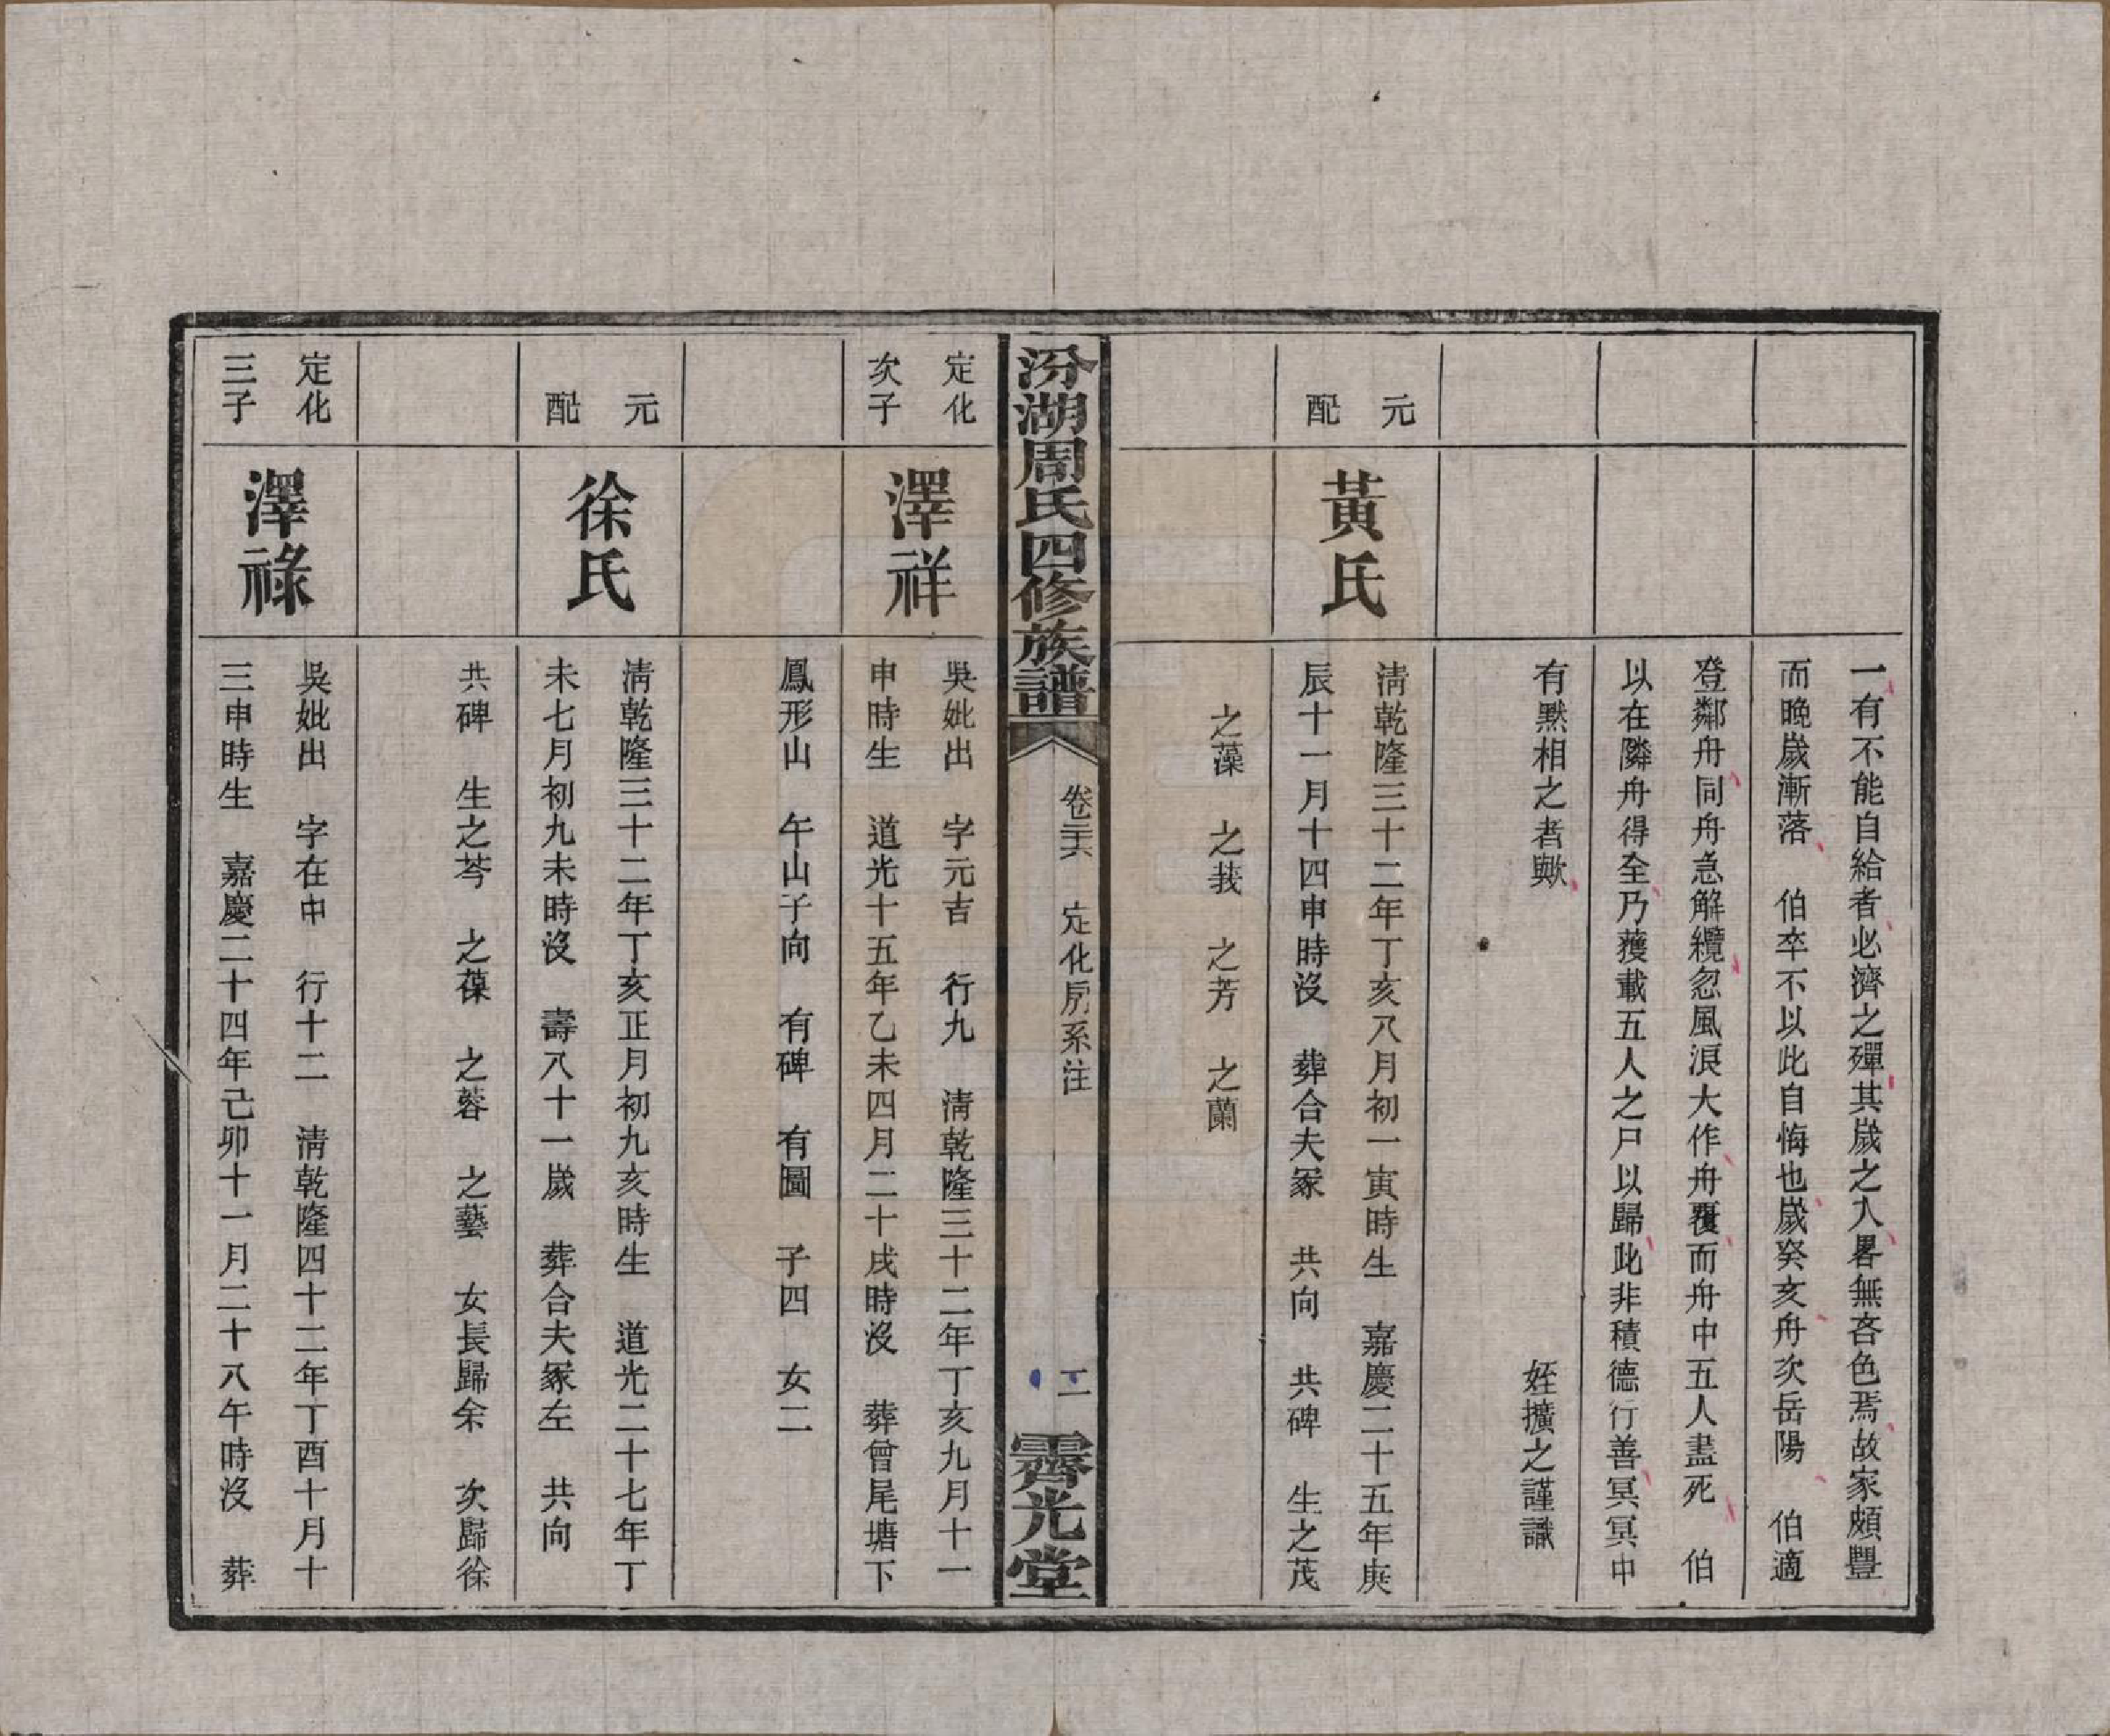 一有不能自給者必濟之殫其歲之入畧無吝色焉故家頗豐
而晚歲漸落　伯卒不以此自悔也歲癸亥舟次岳陽　伯適
登鄰舟同舟急解纜忽風浪大作舟覆而舟中五人盡死　伯
以在隣舟得全乃蒦載五人之尸以歸此非積德行善冥冥中
有默相之者歟　姪擴之謹識
元配
黃氏
清乾隆三十二年丁亥八月初一寅時生　嘉慶二十五年庚
辰十一月十四申時沒　葬合夫冢　共向　共碑　生之茂
之藻　之莪　之芳　之蘭
汾湖周氏四修族譜
卷三六　定化房系注
二
霽光堂
定化次子
澤祥
吳妣出　字元吉　行九　清乾隆三十二年丁亥九月十一
申時生　道光十五年乙未四月二十戌時沒　葬曾尾塘下
鳳形山　午山子向　有碑　有圖　子四　女二
元配
徐氏
清乾隆三十二年丁亥正月初九亥時生　道光二十七年丁
未七月初九未時沒　壽八十一歲　葬合夫冢左　共向
共碑　生之芩　之葆　之蓉　之藝　女長歸余　次歸徐
定化三子
澤祿
吳妣出　字在中　行十二　清乾隆四十二年丁酉十月十
三申時生　嘉慶二十四年己卯十一月二十八午時沒　葬